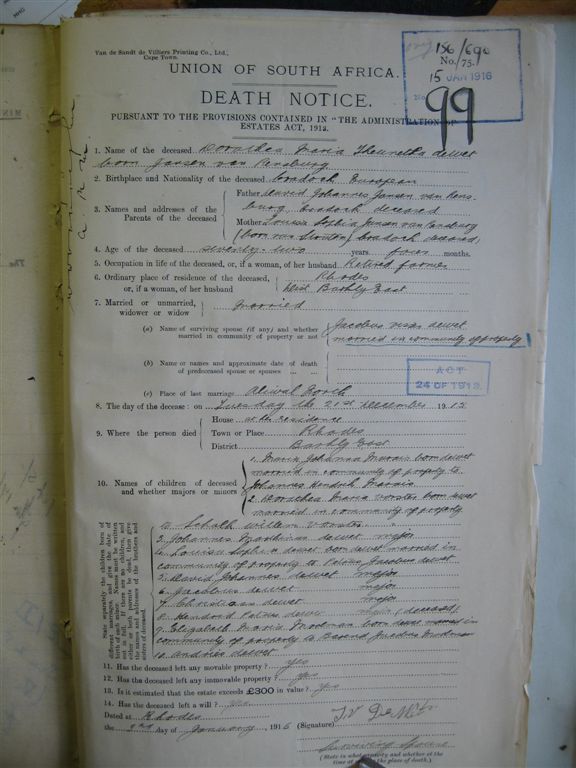 Van de Sandt de Villiers Printing Co., Ltd.,
Cape Town.
156/690
No./75.
15 JAN 1916
No.
99
UNION OF SOUTH AFRICA.
DEATH NOTICE.
PURSUANT TO THE PROVISIONS CONTAINED IN "THE ADMINISTRATION OF
ESTATES ACT, 1913.
1. Name of the deceased Dorothea Maria Theunetta dewet
born Jansen van Rensburg
2. Birthplace and Nationality of the deceased Cradock European
3. Names and addresses of the Parents of the deceased
Father David Johannes Jansen van Rens-
burg, Cradock deceased
Mother Louisa Sophia Jansen van Rensburg
(born van Cradock deceased)
4. Age of the deceased seventy-two years four months.
5. Occupation in life of the deceased, or, if a woman, of her husband Retired farmer
6. Ordinary place of residence of the deceased, or, if a woman, of her husband
Rhodes
Dist Barkly East
7. Married or unmarried, widower or widow
Married
(a) Name of surviving spouse (if any) and whether married in community of property or not
Jacobus dewet
married in community of property
(b) Name or names and approximate date of death of predeceased spouse or spouses
ACT
24 OF 1913.
(c) Place of last marriage Aliwal North
8. The day of the decease: on Tuesday the 21st December 1915
9. Where the person died
House at the residence
Town or Place Rhodes
District Barkly East
10. Names of children of deceased and whether majors or minors
1. Maria Johanna Marais born dewet
married in community of property to
Johannes Hendrik Marais
2. Dorothea Maria Vorster born dewet
married in community of property
to Schalk Willem Vorster
3. Johannes Marthinus dewet major
4. Louisa Sophia dewet born dewet married in
community of property to Petrus Jacobus dewet
5. David Johannes dewet major
6. Jacobus dewet major
7. Christiaan dewet major
8. Hendrik Petrus dewet major (deceased)
9. Elizabeth Maria Moolman born dewet married in
community of property to Barend Jacobus Moolman
10. Andries dewet
State separately the children born of
different marriages, and give the date of
birth of each minor. Names must be written
out in full. If there are no children, and
either or both parents be dead, then give
the names and addresses of the brothers and
sisters of deceased.
11. Has the deceased left any movable property? yes
12. Has the deceased left any immovable property? yes
13. Is it estimated that the estate exceeds £300 in value? yes
14. Has the deceased left a will? yes
Dated at Rhodes
the 3rd day of January, 1916 (Signature) J.V. DeWet
Surviving Spouse
(State in what capacity and whether at the
time at the place of death.)